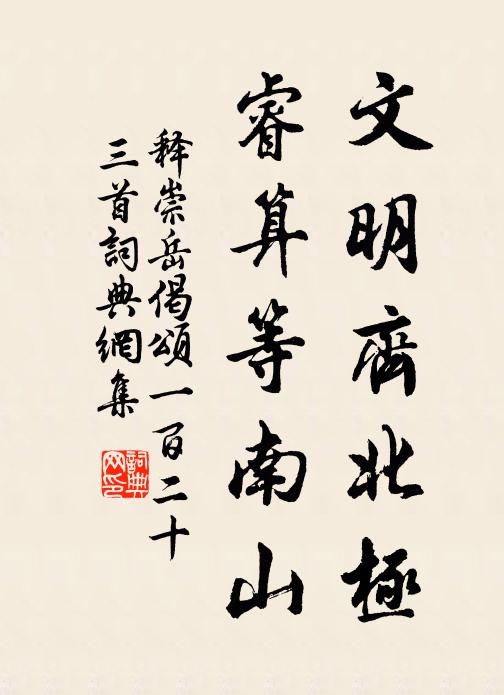 文明齊北極
睿算等南山
释崇岳偈頌一百二十
三首詞典網集
詞典网印